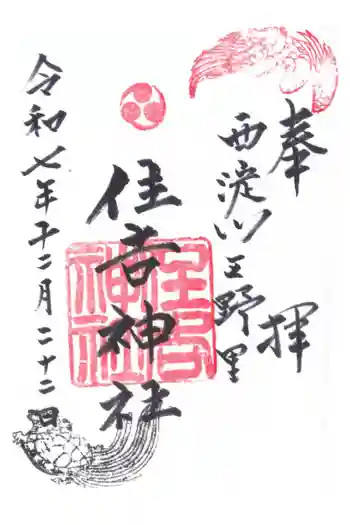 奉拝
西淀川区野里
住吉神社
住吉神社
令和七年十二月二十二日